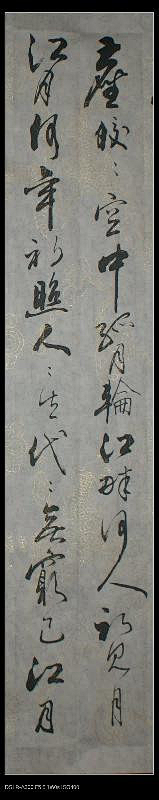 塵皎〻空中孤月輪江畔何人初見月
江月何年初照人〻生代〻無窮已江月
ISO400